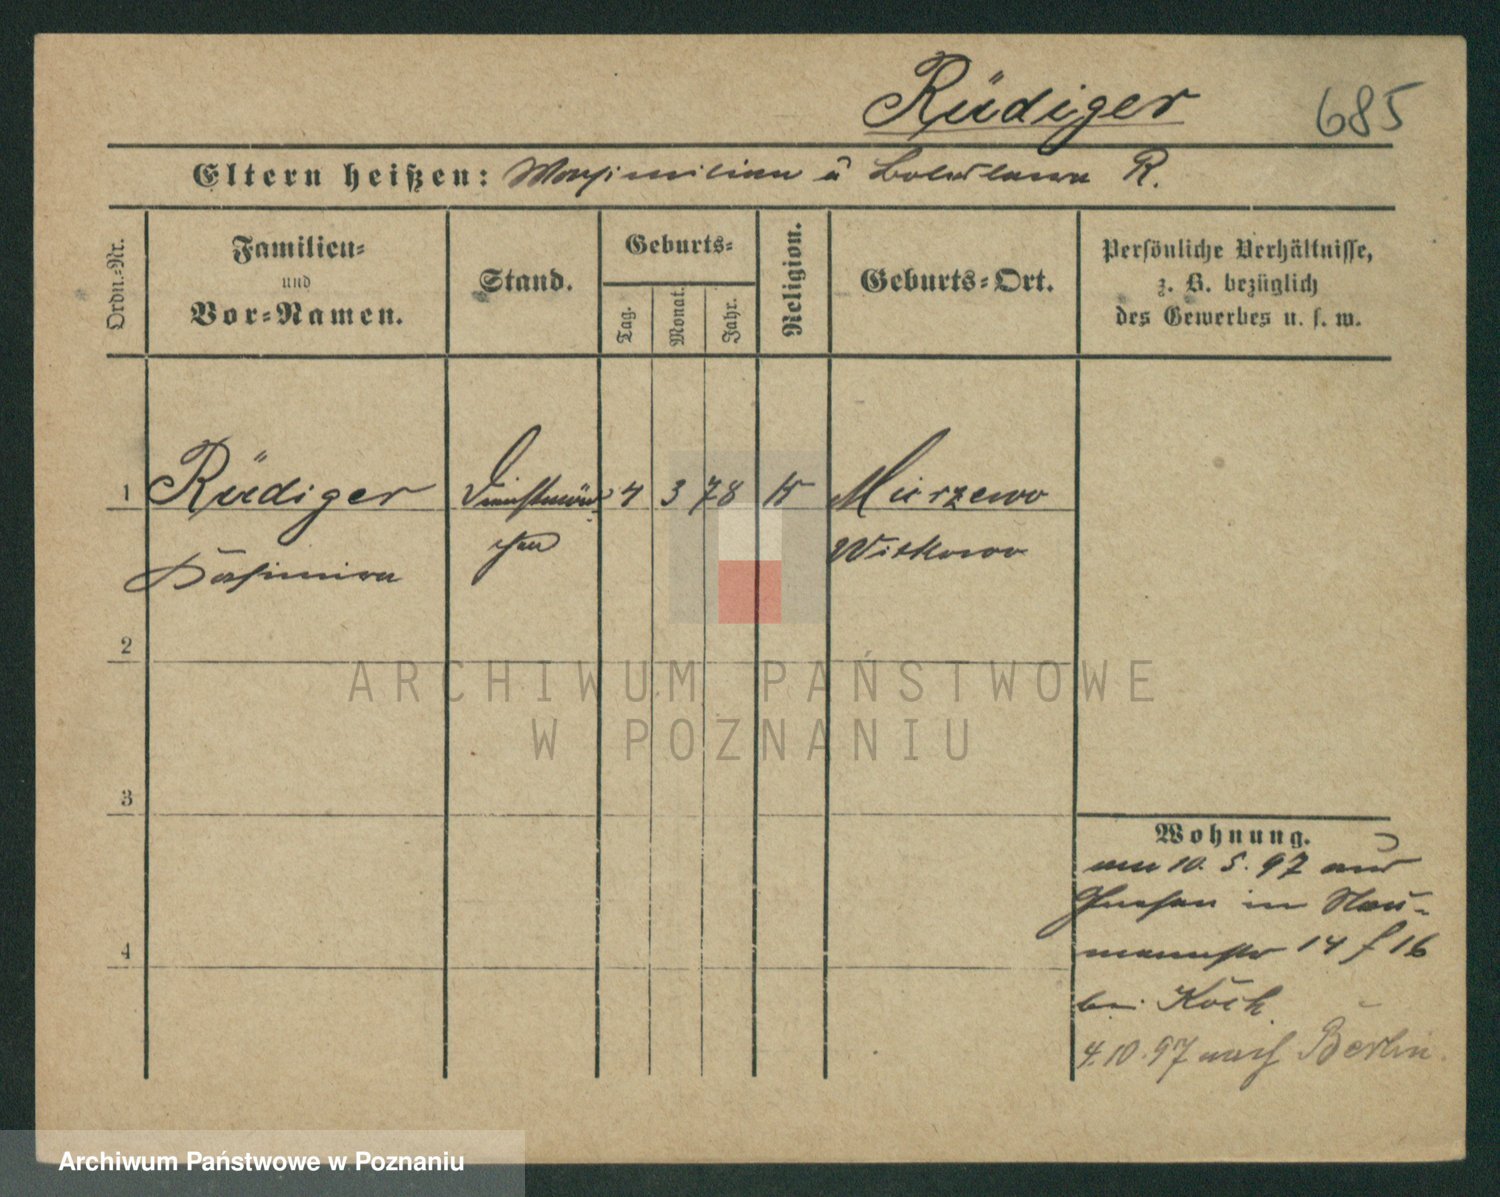 Rüdiger 685
Eltern heißen: Maximilian u Boleslawa R.
Ordn.-Nr.
Familien-
und
Vor-Namen.
Stand.
Geburts-
Tag.
Monat.
Jahr.
Religion.
Geburts-Ort.
Persönliche Verhältnisse,
z. B. bezüglich
des Gewerbes u. s. w.
1 Rüdiger Dienstmäd- 4 3 78 Mierzewo
chen Witkowo
Kasimira
2
3
4
Wohnung.
am 10. 5. 97 aus
Gnesen in Nau-
mannstr 14/16
bei Koch
4.10.97 nach Berlin.
ARCHIWUM PAŃSTWOWE
W POZNANIU
Archiwum Państwowe w Poznaniu